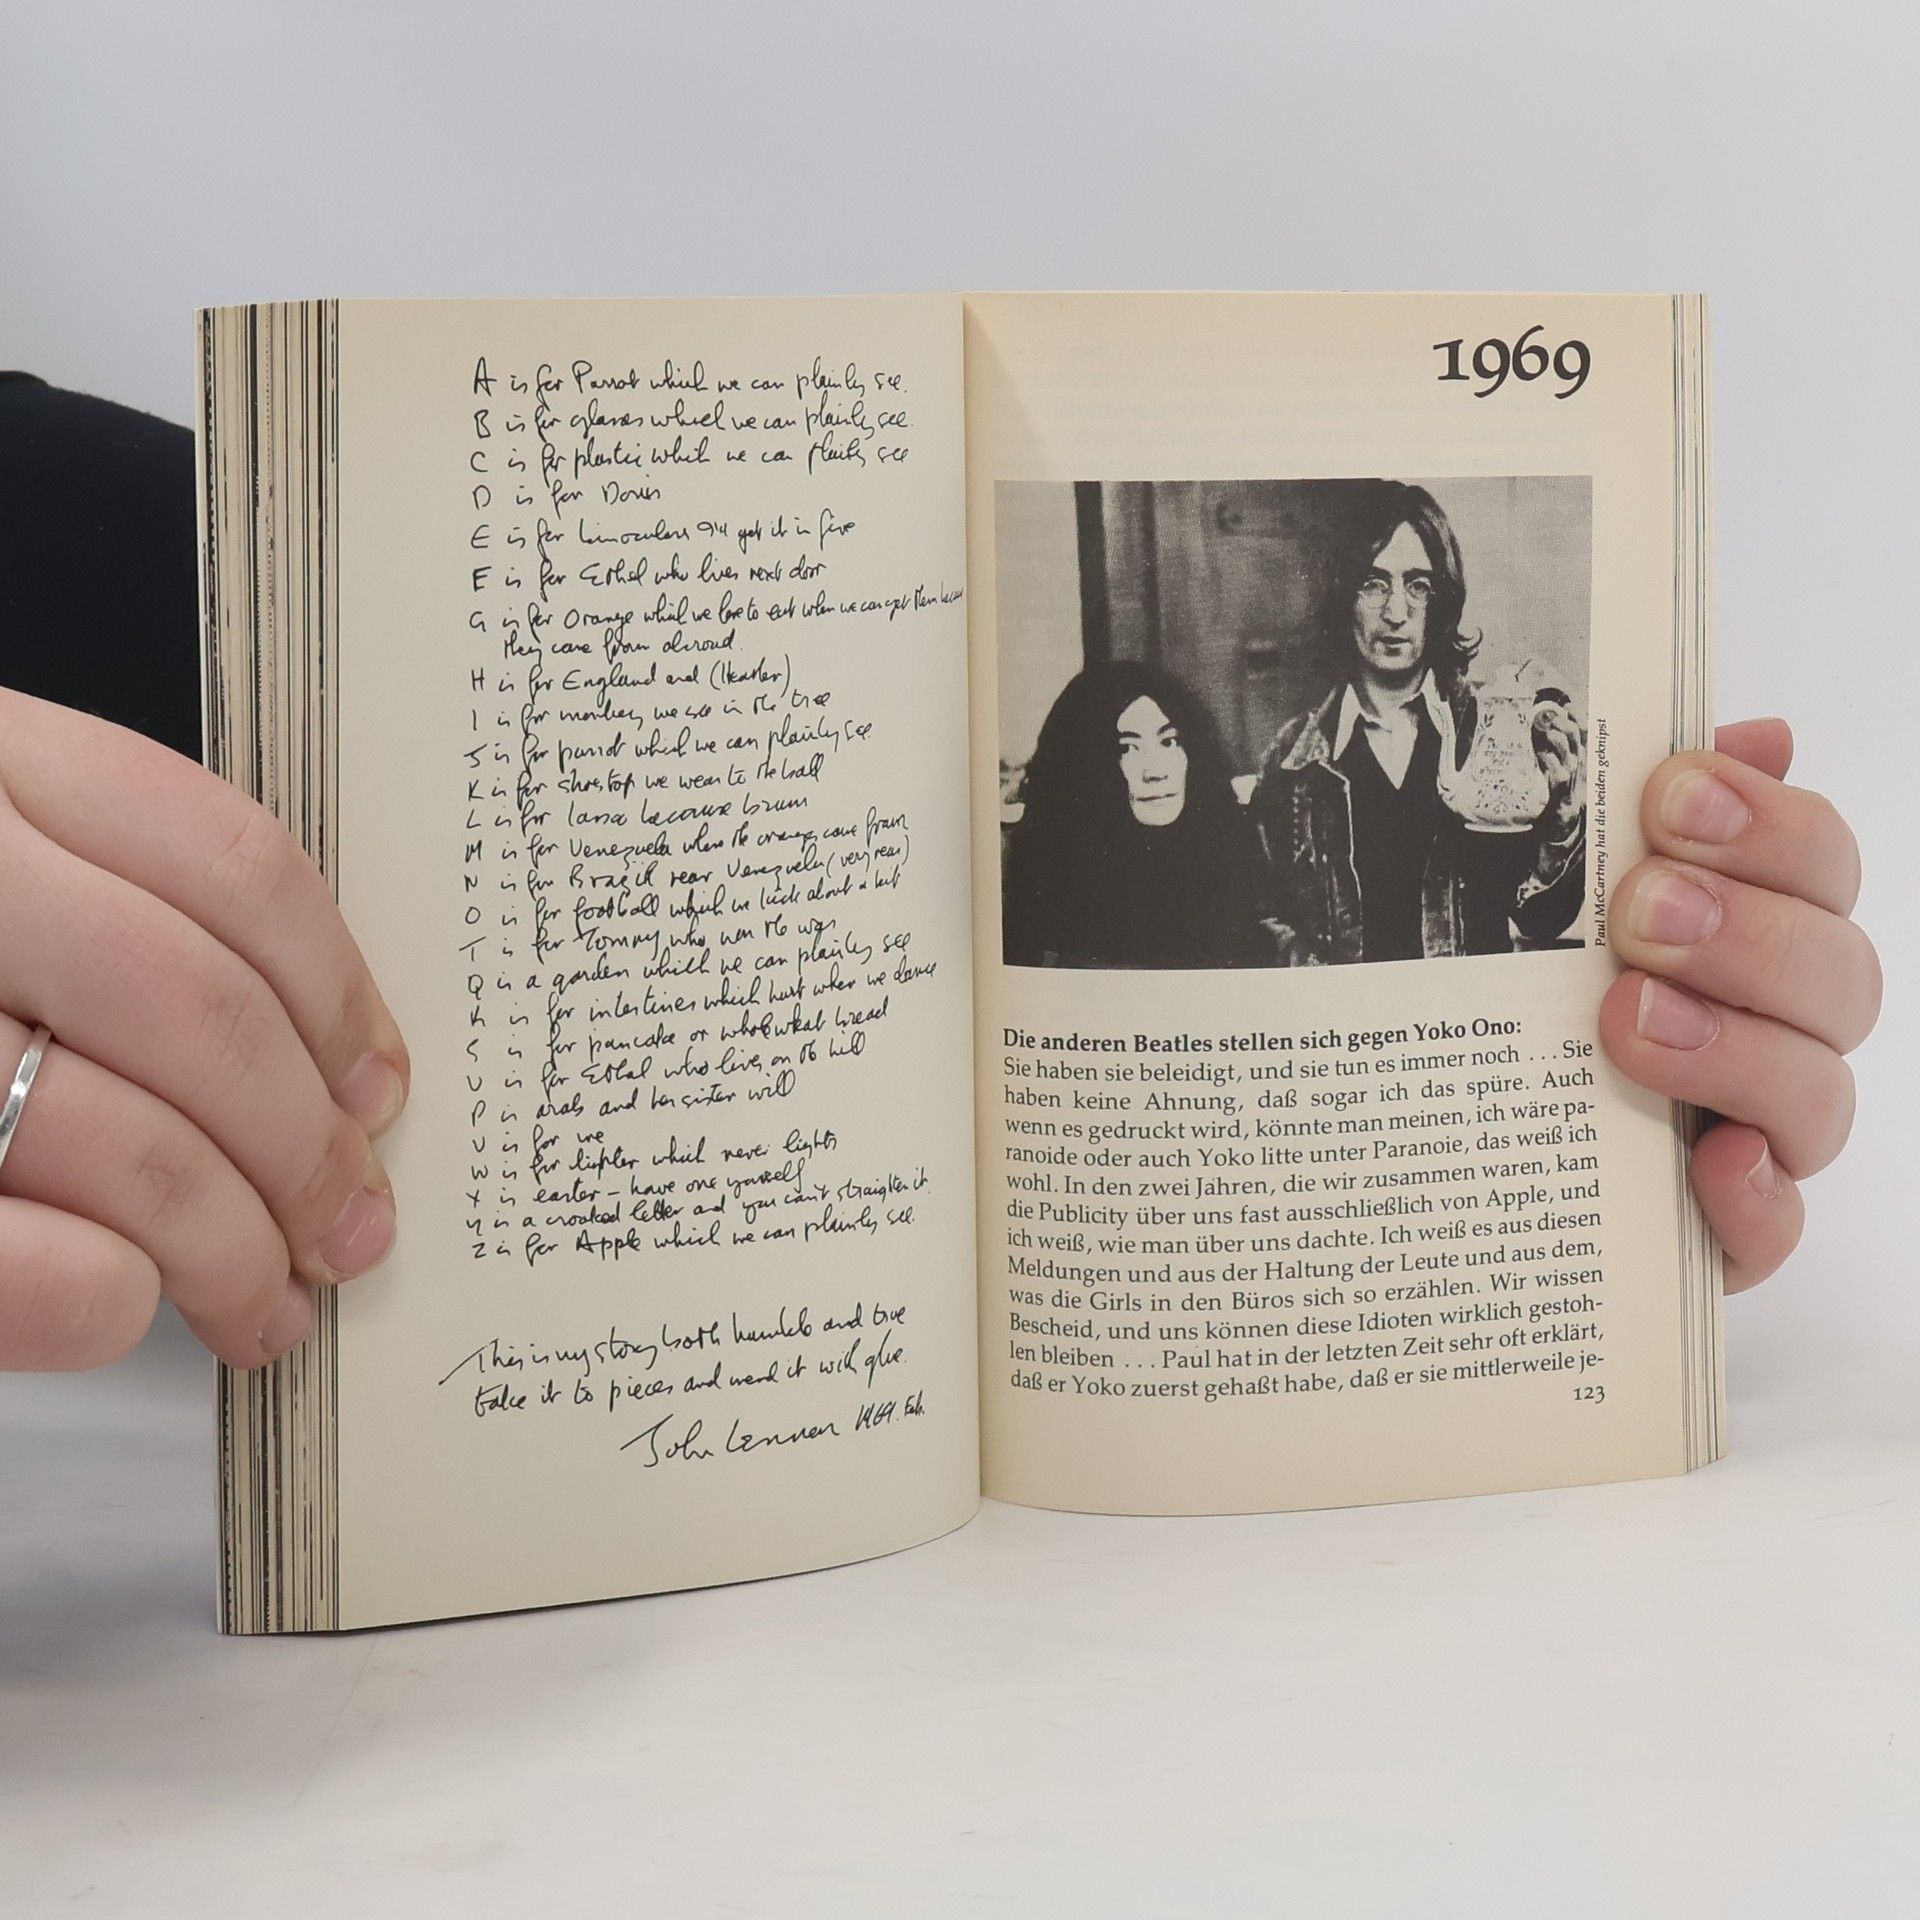 A is for Parrot which we can plainly see.
B is for glasses which we can plainly see.
C is for plastic which we can plainly see
D is for Doris
E is for binoculars I'll get it in five
F is for Ethel who lives next door
G is for Orange which we love to eat when we can get them because
they come from abroad.
H is for England and (Heather)
I is for monkey we see in the tree
J is for parrot which we can plainly see
K is for shoetop we wear to the ball
L is for because brum
M is for Venezuela where the oranges come from
N is for Brazil near Venezuela (very near)
O is for football which we kick about a bit
T is for Tommy who won the war
Q is a garden which we can plainly see
R is for intestines which hurt when we dance
S is for pancake or whole wheat bread
U is for Ethel who lives on the hill
P is arab and her sister will
V is for me
W is for lighter which never lights
X is easter – have one yourself
Y is a crooked letter and you can't straighten it.
Z is for Apple which we can plainly see.
This is my story both humble and true
take it to pieces and mend it with glue.
John Lennon 1969. Feb.
1969
Paul McCartney hat die beiden geknipst
Die anderen Beatles stellen sich gegen Yoko Ono:
Sie haben sie beleidigt, und sie tun es immer noch . . . Sie
haben keine Ahnung, daß sogar ich das spüre. Auch
wenn es gedruckt wird, könnte man meinen, ich wäre pa-
ranoide oder auch Yoko litte unter Paranoie, das weiß ich
wohl. In den zwei Jahren, die wir zusammen waren, kam
die Publicity über uns fast ausschließlich von Apple, und
ich weiß, wie man über uns dachte. Ich weiß es aus diesen
Meldungen und aus der Haltung der Leute und aus dem,
was die Girls in den Büros sich so erzählen. Wir wissen
Bescheid, und uns können diese Idioten wirklich gestoh-
len bleiben . . . Paul hat in der letzten Zeit sehr oft erklärt,
daß er Yoko zuerst gehaßt habe, daß er sie mittlerweile je-
123